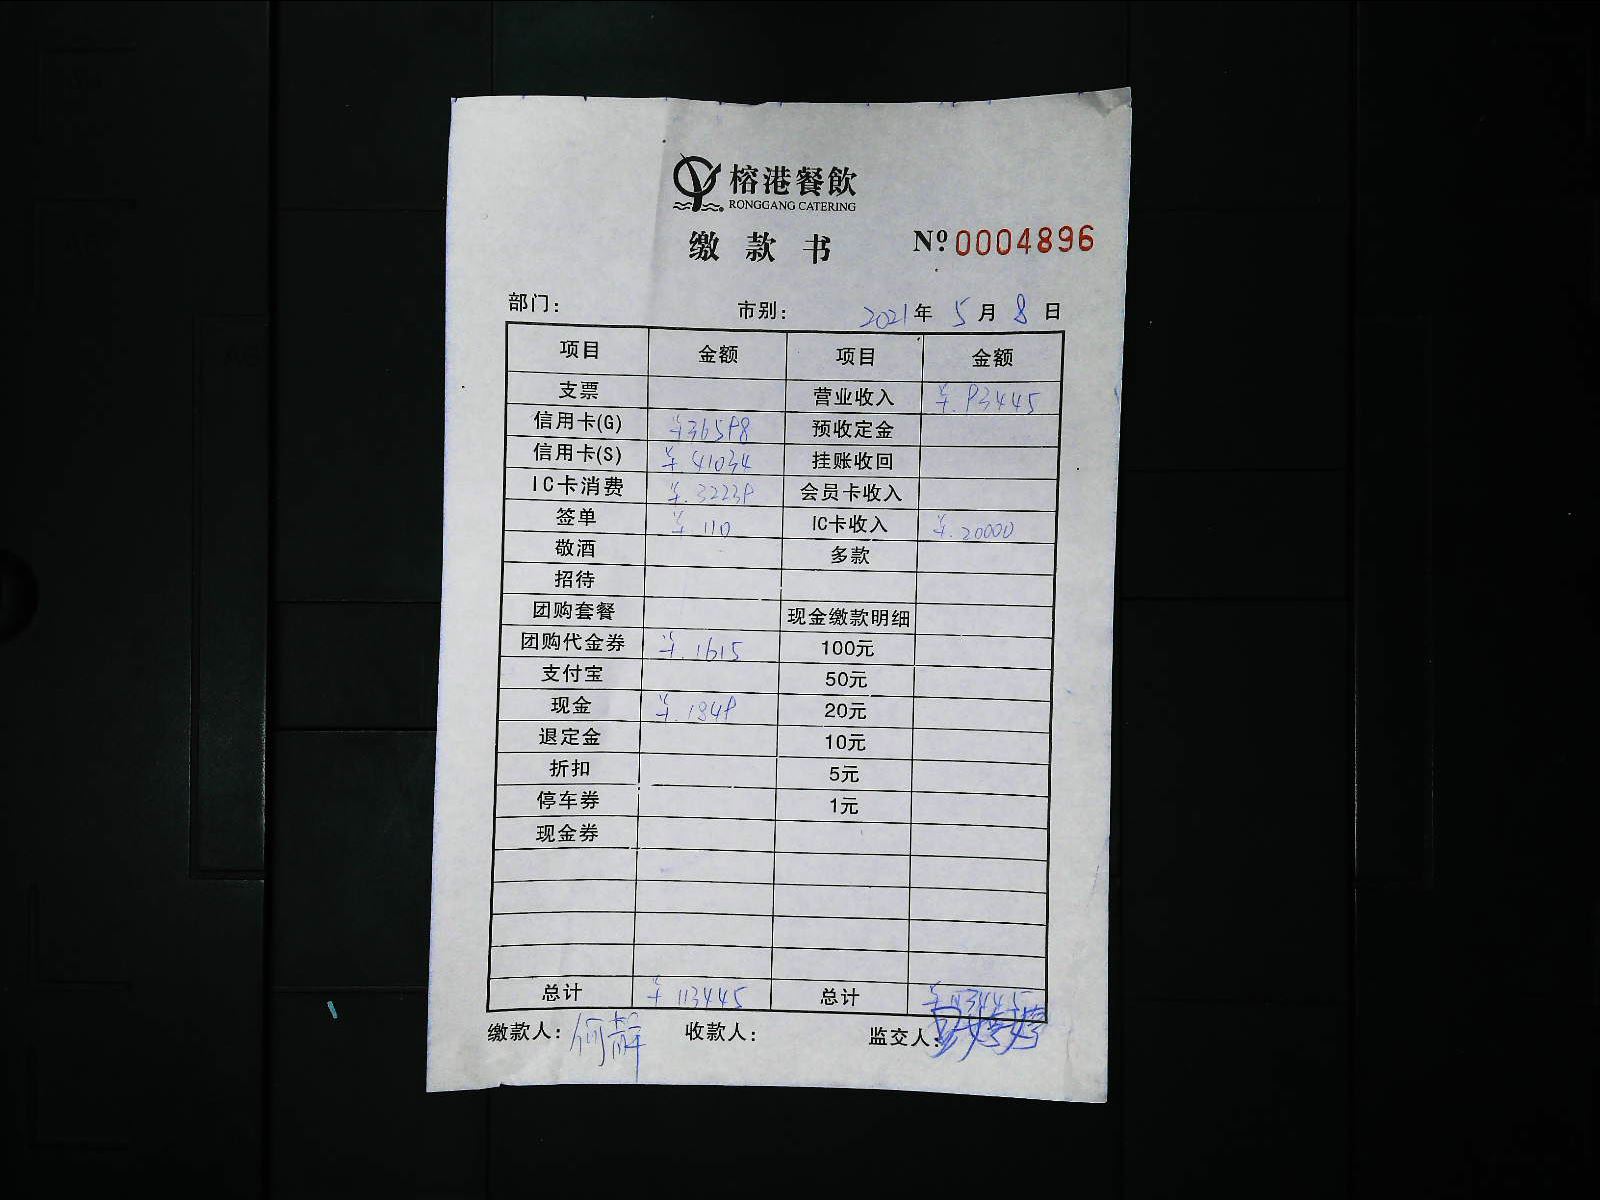 榕港餐飲
RONGGANG CATERING
缴款书 Nº 0004896
部门： 市别： 2021年 5月 8日
项目 金额 项目 金额
支票 营业收入 ¥.93445
信用卡(G) ¥36598 预收定金
信用卡(S) ¥.41034 挂账收回
IC卡消费 ¥.32239 会员卡收入
签单 ¥.110 IC卡收入 ¥.20000
敬酒 多款
招待
团购套餐 现金缴款明细
团购代金券 ¥.1615 100元
支付宝 50元
现金 ¥.1849 20元
退定金 10元
折扣 5元
停车券 1元
现金券
总计 ¥113445 总计 ¥113445
缴款人：何静 收款人： 监交人：